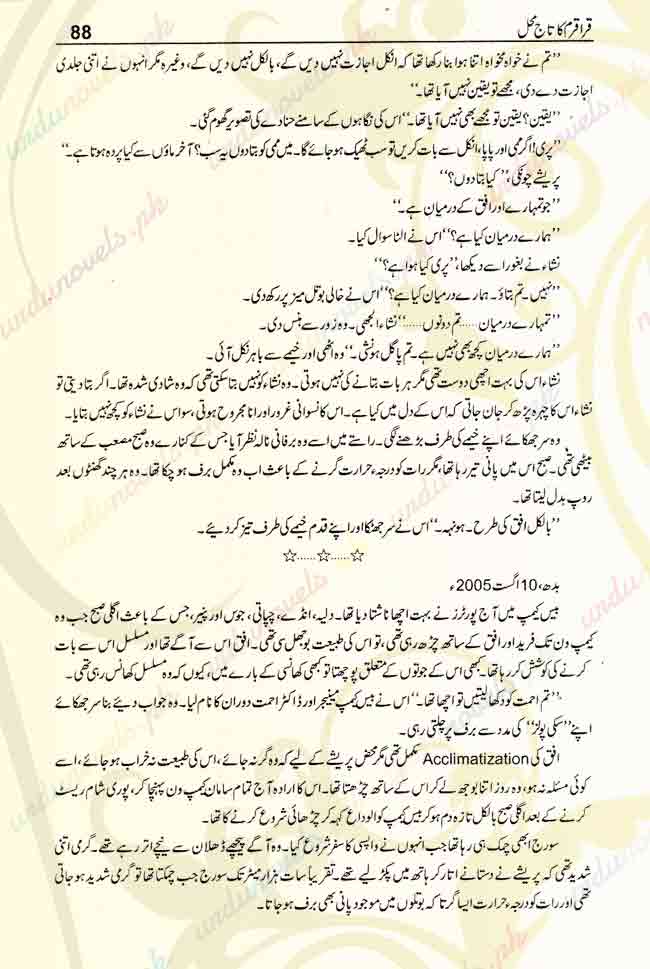 قراقرم کا تاج محل
88
’’تم نے خواہ مخواہ اتنا ہوا بنا رکھا تھا کہ انکل اجازت نہیں دیں گے، بالکل نہیں دیں گے، وغیرہ مگر انہوں نے اتنی جلدی
اجازت دے دی، مجھے تو یقین نہیں آیا تھا۔‘‘
’’یقین؟ یقین تو مجھے بھی نہیں آیا تھا۔‘‘ اس کی نگاہوں کے سامنے حنادے کی تصویر گھوم گئی۔
’’پری! اگر ممی اور پاپا، انکل سے بات کریں تو سب ٹھیک ہو جائے گا۔ میں ممی کو بتا دوں یہ سب؟ آخر ماؤں سے کیا پردہ ہوتا ہے۔‘‘
پریشے چونکی، ’’کیا بتا دوں؟‘‘
’’جو تمہارے اور افق کے درمیان ہے۔‘‘
’’ہمارے درمیان کیا ہے؟‘‘ اس نے الٹا سوال کیا۔
نشاء نے بغور اسے دیکھا، ’’پری کیا ہوا ہے؟‘‘
’’نہیں۔ تم بتاؤ۔ ہمارے درمیان کیا ہے؟‘‘ اس نے خالی بوتل میز پر رکھ دی۔
’’تمہارے درمیان ...... تم دونوں ......‘‘ نشاء الجھی۔ وہ زور سے ہنس دی۔
’’ہمارے درمیان کچھ بھی نہیں ہے۔ تم پاگل ہو نشی۔‘‘ وہ اٹھی اور خیمے سے باہر نکل آئی۔
نشاء اس کی بہت اچھی دوست تھی مگر ہر بات بتانے کی نہیں ہوتی۔ وہ نشاء کو نہیں بتا سکتی تھی کہ وہ شادی شدہ تھا۔ اگر بتا دیتی تو
نشاء اس کا چہرہ پڑھ کر جان جاتی کہ اس کے دل میں کیا ہے۔ اس کا نسوانی غرور اور انا مجروح ہوتی، سو اس نے نشاء کو کچھ نہیں بتایا۔
وہ سر جھکائے اپنے خیمے کی طرف بڑھنے لگی۔ راستے میں اسے وہ برفانی نالہ نظر آیا جس کے کنارے وہ صبح مصعب کے ساتھ
بیٹھی تھی۔ صبح اس میں پانی تیر رہا تھا، مگر رات کو درجہ ء حرارت گرنے کے باعث اب وہ مکمل برف ہو چکا تھا۔ وہ ہر چند گھنٹوں بعد
روپ بدل لیتا تھا۔
’’بالکل افق کی طرح۔ ہونہہ۔‘‘ اس نے سر جھٹکا اور اپنے قدم خیمے کی طرف تیز کر دیئے۔
☆......☆......☆
بدھ، 10 اگست 2005ء
بیس کیمپ میں آج پورٹرز نے بہت اچھا ناشتا دیا تھا۔ دلیہ، انڈے، چپاتی، جوس اور پنیر، جس کے باعث اگلی صبح جب وہ
کیمپ ون تک فرید اور افق کے ساتھ چڑھ رہی تھی، تو اس کی طبیعت بوجھل سی تھی۔ افق اس سے آگے تھا اور مسلسل اس سے بات
کرنے کی کوشش کر رہا تھا۔ کبھی اس کے جوتوں کے متعلق پوچھتا تو کبھی کھانسی کے بارے میں، کیوں کہ وہ مسلسل کھانس رہی تھی۔
’’تم احمت کو دکھا لیتیں تو اچھا تھا۔‘‘ اس نے بیس کیمپ مینیجر اور ڈاکٹر احمت دوران کا نام لیا۔ وہ جواب دیئے بنا سر جھکائے
اپنے ’’سکی پولز‘‘ کی مدد سے برف پر چلتی رہی۔
افق کی Acclimatization مکمل تھی مگر محض پریشے کے لیے کہ وہ گر نہ جائے، اس کی طبیعت نہ خراب ہو جائے، اسے
کوئی مسئلہ نہ ہو، وہ روز اتنا بوجھ لے کر اس کے ساتھ چڑھتا تھا۔ اس کا ارادہ آج تمام سامان کیمپ ون پہنچا کر، پوری شام ریسٹ
کرنے کے بعد اگلی صبح بالکل تازہ دم ہو کر بیس کیمپ کو الوداع کہہ کر چڑھائی شروع کرنے کا تھا۔
سورج ابھی چمک ہی رہا تھا جب انہوں نے واپسی کا سفر شروع کیا۔ وہ آگے پیچھے ڈھلان سے نیچے اتر رہے تھے۔ گرمی اتنی
شدید تھی کہ پریشے نے دستانے اتار کر ہاتھ میں پکڑ لیے تھے۔ تقریباً سات ہزار میٹر تک سورج جب چمکتا تھا تو گرمی شدید ہو جاتی
تھی اور رات کو درجہ ء حرارت ایسا گرتا کہ بوتلوں میں موجود پانی بھی برف ہو جاتا۔
urdunovels.pk